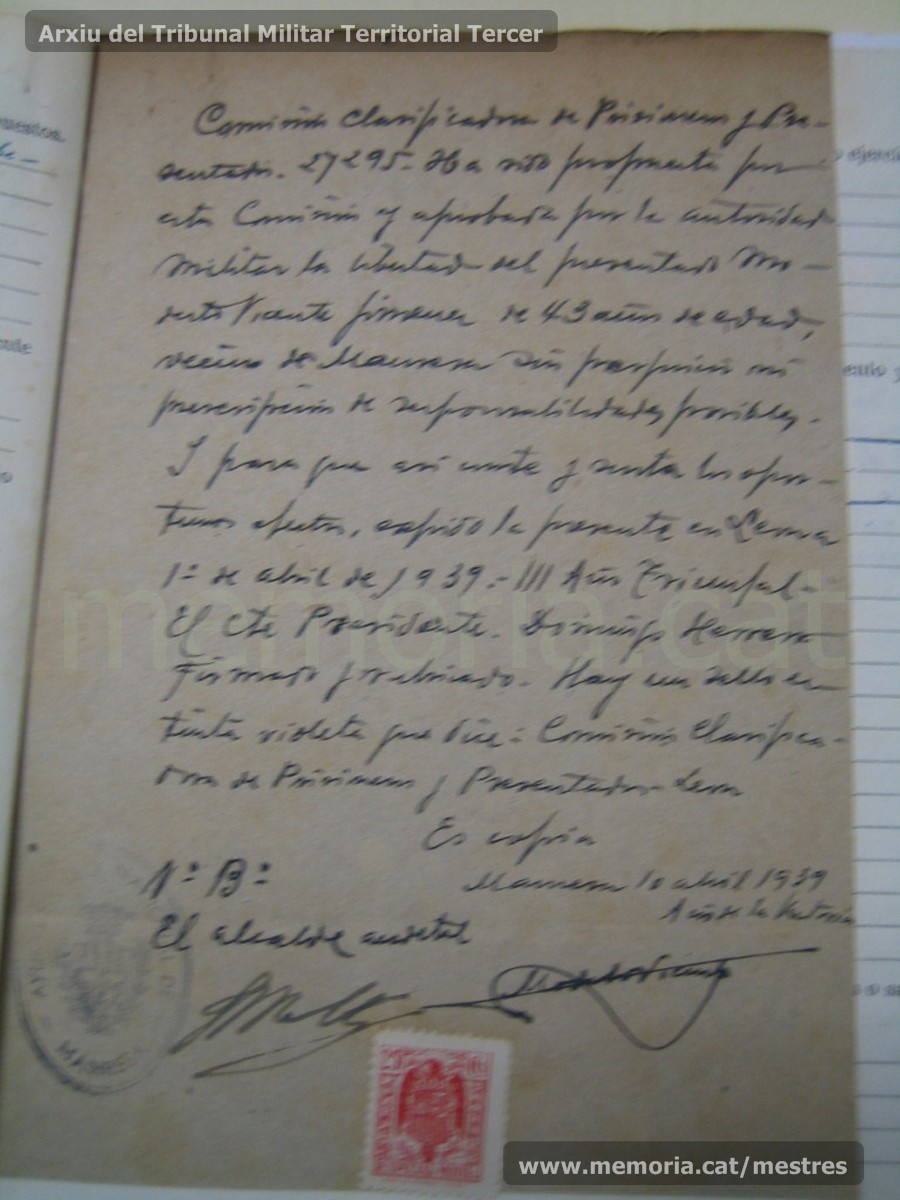 Arxiu del Tribunal Militar Territorial Tercer
Comisión Clasificadora de Prisioneros y Pre-
sentados. 27295. Ha sido propuesta por
esta Comisión y aprobada por la autoridad
Militar la libertad del presentado Mo-
desto Vicente Jimenez de 43 años de edad,
vecino de Manresa sin perjuicio ni
prescripción de responsabilidades posibles.
I para que así conste y surta los opor-
tunos efectos, expido la presente en Lerma
1º de abril de 1939.- III Año Triunfal-
El Cte Presidente. Domingo Herrera
Firmado y rubricado. Hay un sello en
tinta violeta que dice: Comisión Clasifica-
dora de Prisioneros y Presentados-
Es copia
Manresa 10 abril 1939
Año de la Victoria
Vº Bº
El alcalde accidental
Modesto Vicente
MANRESA
memoria.cat
www.memoria.cat/mestres